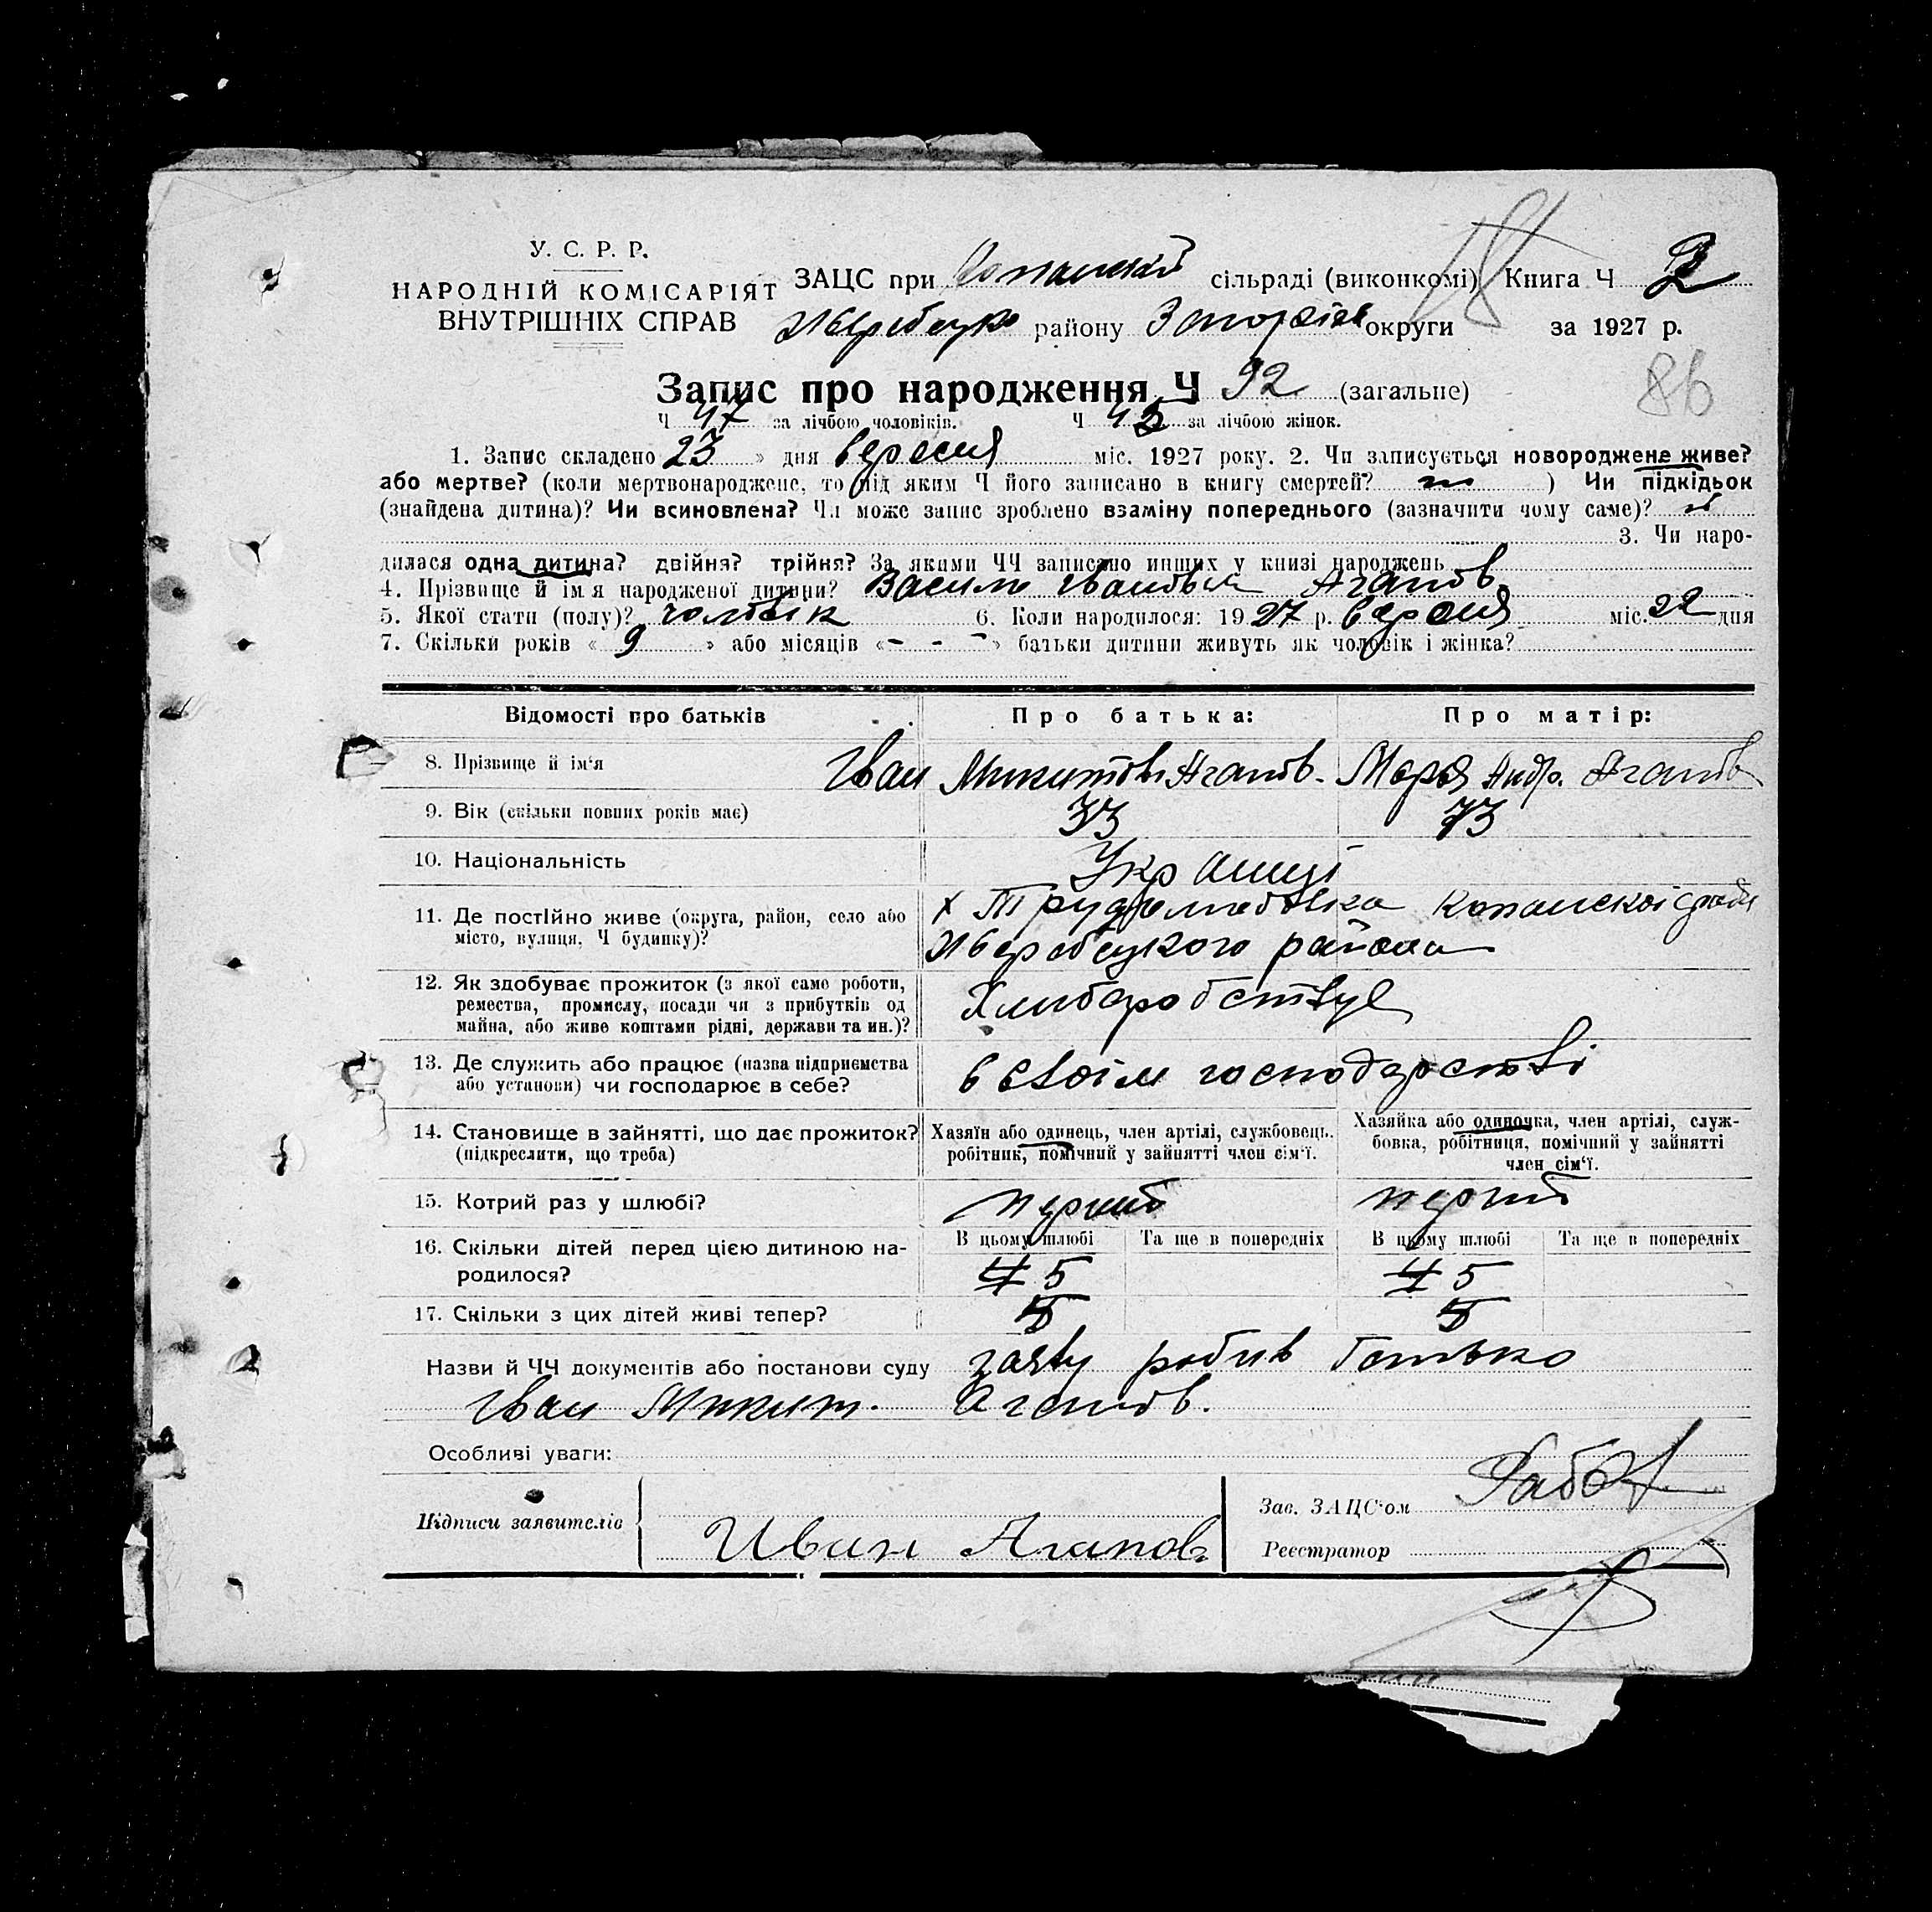 У. С. Р. Р.
НАРОДНІЙ КОМІСАРІЯТ
ВНУТРІШНІХ СПРАВ
ЗАЦС при Копанскій сільраді (виконкомі) Книга Ч 2
району Запоріж округи за 1927 р.
18
86
Запис про народження Ч 92 (загальне)
Ч 47 за лічбою чоловіків. Ч 45 за лічбою жінок.
1. Запис складено 23 » дня вересня міс. 1927 року. 2. Чи записується новороджене живе?
або мертве? (коли мертвонароджене, то під яким Ч його записано в книгу смертей? ) Чи підкідьок
(знайдена дитина)? Чи всиновлена? Чи може запис зроблено взаміну попереднього (зазначити чому саме)?
3. Чи наро-
дилася одна дитина? двійня? трійня? За якими ЧЧ записано инших у книзі народжень
4. Прізвище й ім'я народженої дитини? Василь Іванович Агапов
5. Якої стати (полу)? 6. Коли народилося: 1927 р. вересня міс. 22 дня
7. Скільки років « 9 » або місяців « - - - » батьки дитини живуть як чоловік і жінка?
Відомості про батьків Про батька: Про матір:
8. Прізвище й ім'я Іван Микитов Агапов. Марья Андр. Агапов
9. Вік (скільки повних років має) 33 33
10. Національність Українці
11. Де постійно живе (округа, район, село або
місто, вулиця, Ч будинку)?
х Трудолюбовка Копанскоі сради
района
12. Як здобуває прожиток (з якої саме роботи,
ремества, промислу, посади чи з прибутків од
майна, або живе коштами рідні, держави та ин.)?
Хлиборобствує
13. Де служить або працює (назва підприємства
або установи) чи господарює в себе?
в своїм господарстві
14. Становище в зайнятті, що дає прожиток?
(підкреслити, що треба)
Хазяїн або одинець, член артілі, службовець,
робітник, помічний у зайнятті член сім'ї.
Хазяйка або одиночка, член артілі, служ-
бовка, робітниця, помічний у зайнятті
член сім'ї.
15. Котрий раз у шлюбі? перший перший
16. Скільки дітей перед цією дитиною на-
родилося?
В цьому шлюбі Та ще в попередніх В цьому шлюбі Та ще в попередніх
4 5 4 5
17. Скільки з цих дітей живі тепер? 5 5
Назви й ЧЧ документів або постанови суду заяву робив батько
Іван Микит. Агапов.
Особливі уваги:
Підписи заявителів
Иван Агапов
Зав. ЗАЦС'ом
Реєстратор